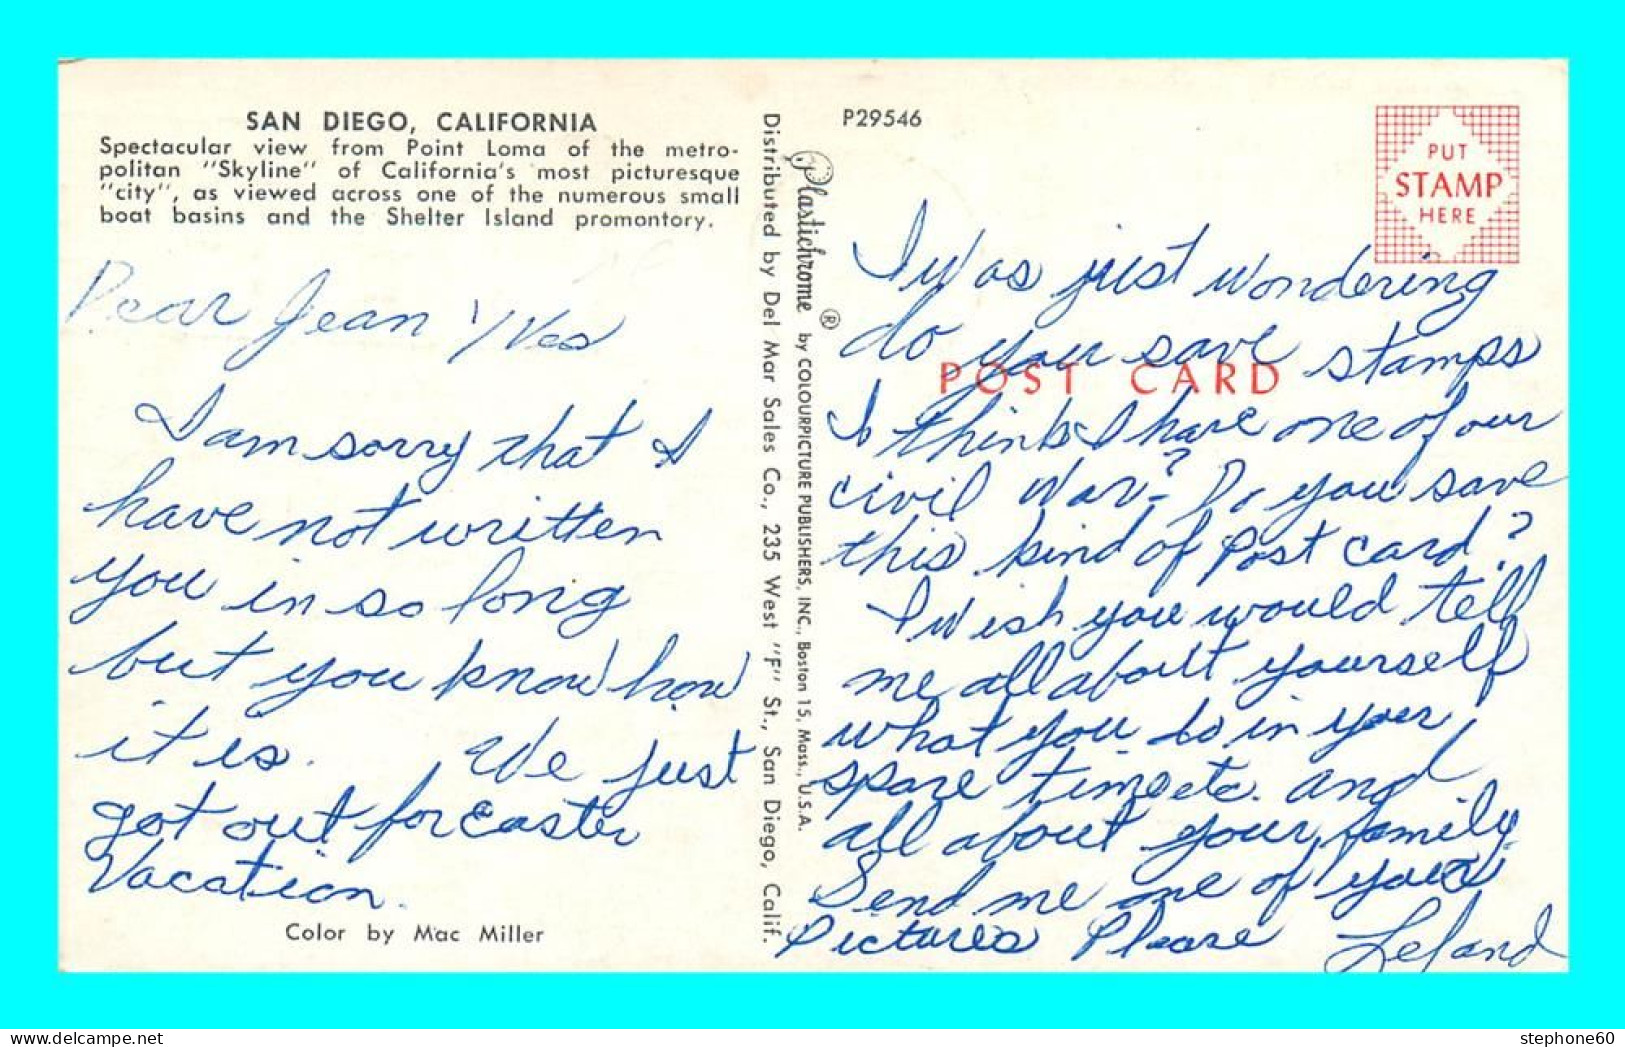 SAN DIEGO, CALIFORNIA
Spectacular view from Point Loma of the metro-
politan "Skyline" of California's most picturesque
"city", as viewed across one of the numerous small
boat basins and the Shelter Island promontory.
Dear Jean Yves
I am sorry that I
have not written
you in so long
but you know how
it is. We just
got out for Easter
Vacation.
Color by Mac Miller
Distributed by Del Mar Sales Co., 235 West "F" St., San Diego, Calif.
Plastichrome ® by COLOURPICTURE PUBLISHERS, INC., Boston 15, Mass., U.S.A.
P29546
PUT
STAMP
HERE
POST CARD
I was just wondering
do you save stamps
I think I have one of our
civil war? Do you save
this kind of Post card?
I wish you would tell
me all about yourself
what you do in your
spare time etc. and
all about your family.
Send me one of your
Pictures Please Leland
stephone60